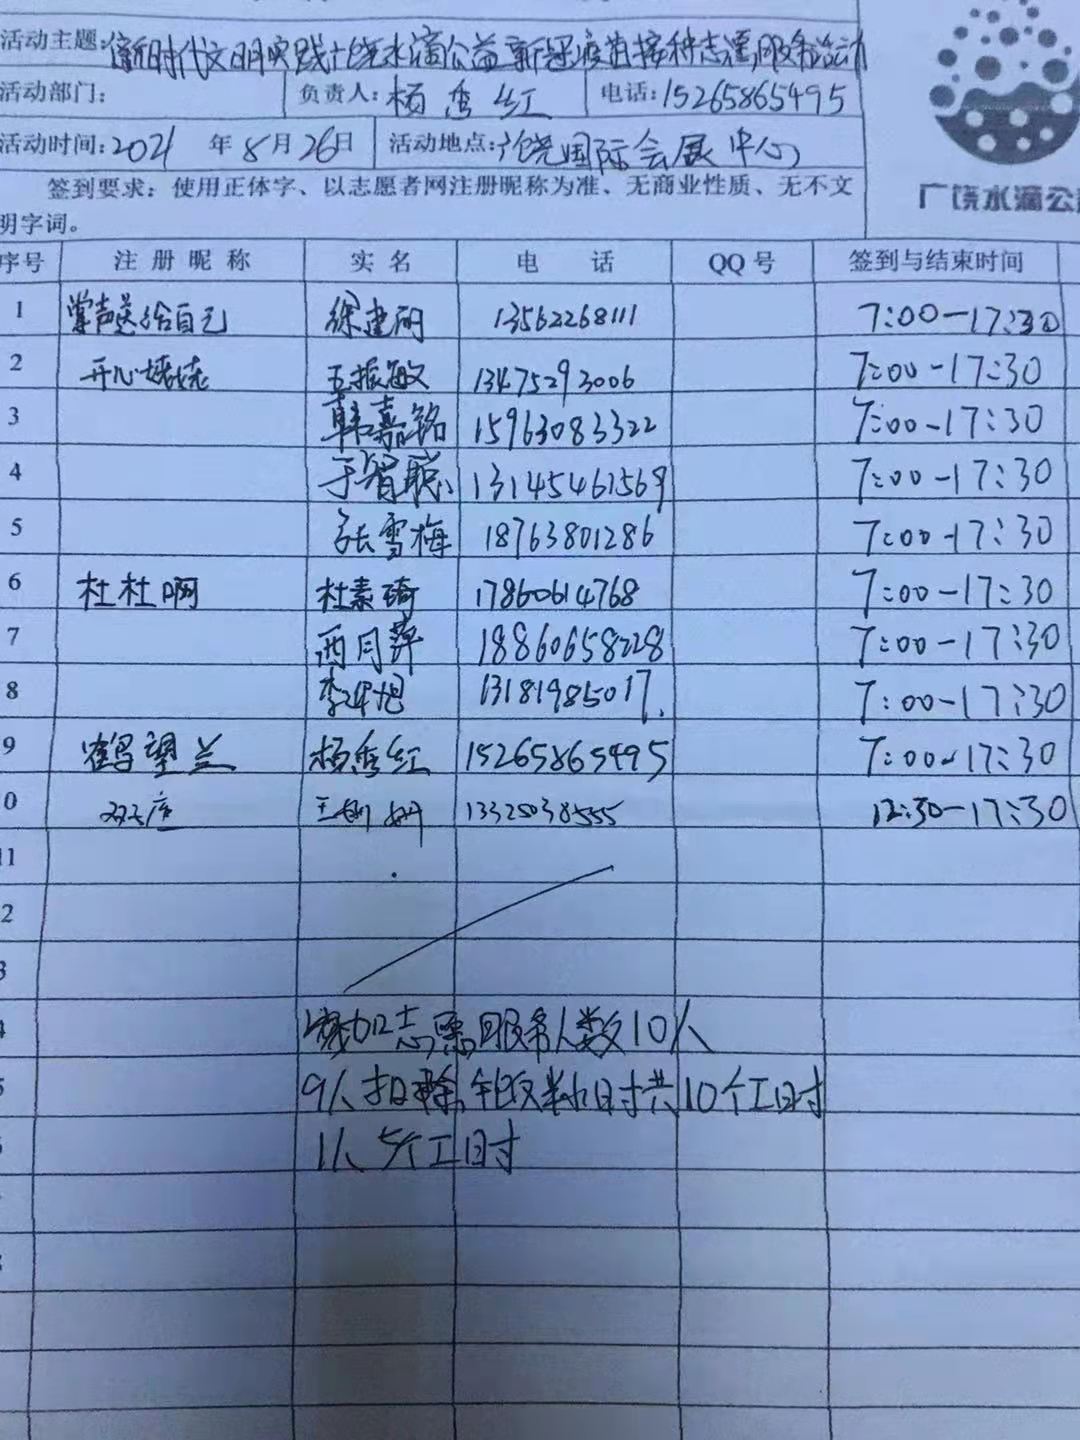 活动主题:新时代文明实践广饶水滴公益新冠疫苗接种志愿服务活动
活动部门: 负责人:杨秀红 电话:15265865495
活动时间:2021年8月26日 活动地点:广饶国际会展中心
签到要求:使用正体字、以志愿者网注册昵称为准、无商业性质、无不文
明字词。
广饶水滴公益
序号 注册昵称 实名 电话 QQ号 签到与结束时间
1 掌声送给自己 徐建明 13562268111 7:00-17:30
2 开心姥姥 王振敏 13475293006 7:00-17:30
3 韩嘉铭 15963083322 7:00-17:30
4 于智聪 13145461569 7:00-17:30
5 张雪梅 18763801286 7:00-17:30
6 杜杜啊 杜素琦 17860614768 7:00-17:30
7 西月萍 18860658228 7:00-17:30
8 李 旭 13181985017 7:00-17:30
9 鹤望兰 杨秀红 15265865495 7:00-17:30
0 双子座 王姗姗 13325038555 12:30-17:30
11
2
3
4 参加志愿服务人数10人
5 9人扣除午饭半小时共10个工时
6 1人5个工时